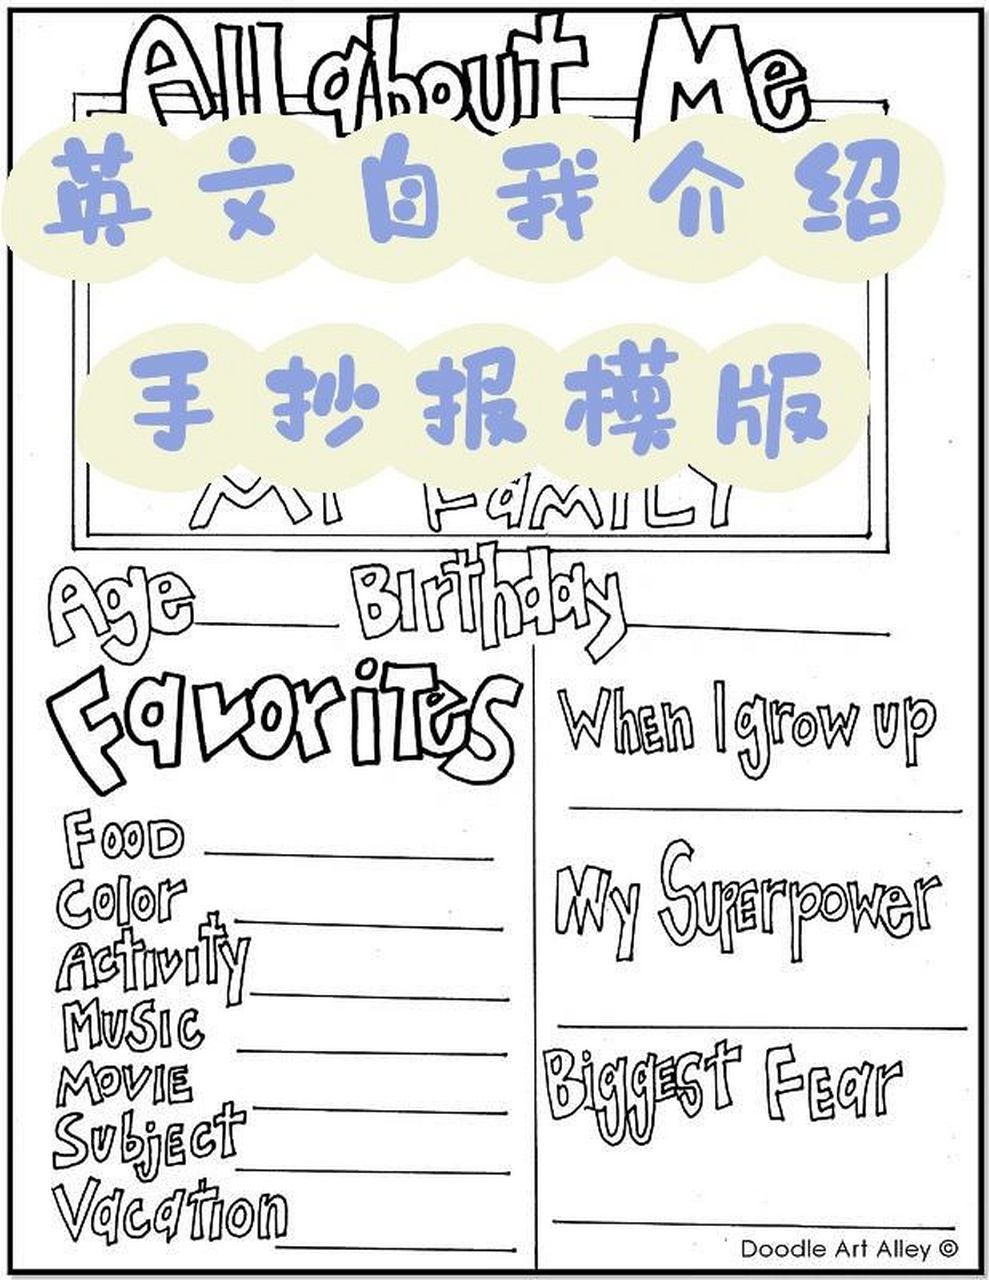 All about Me
英文自我介绍
手抄报模版
My FamILY
Age Birthday
FavoriTes
When I grow up
FOOD
Color
My SuPErpower
Activity
MUSIC
Biggest FEar
MOVIE
SubjEct
Vacation
Doodle Art Alley ©